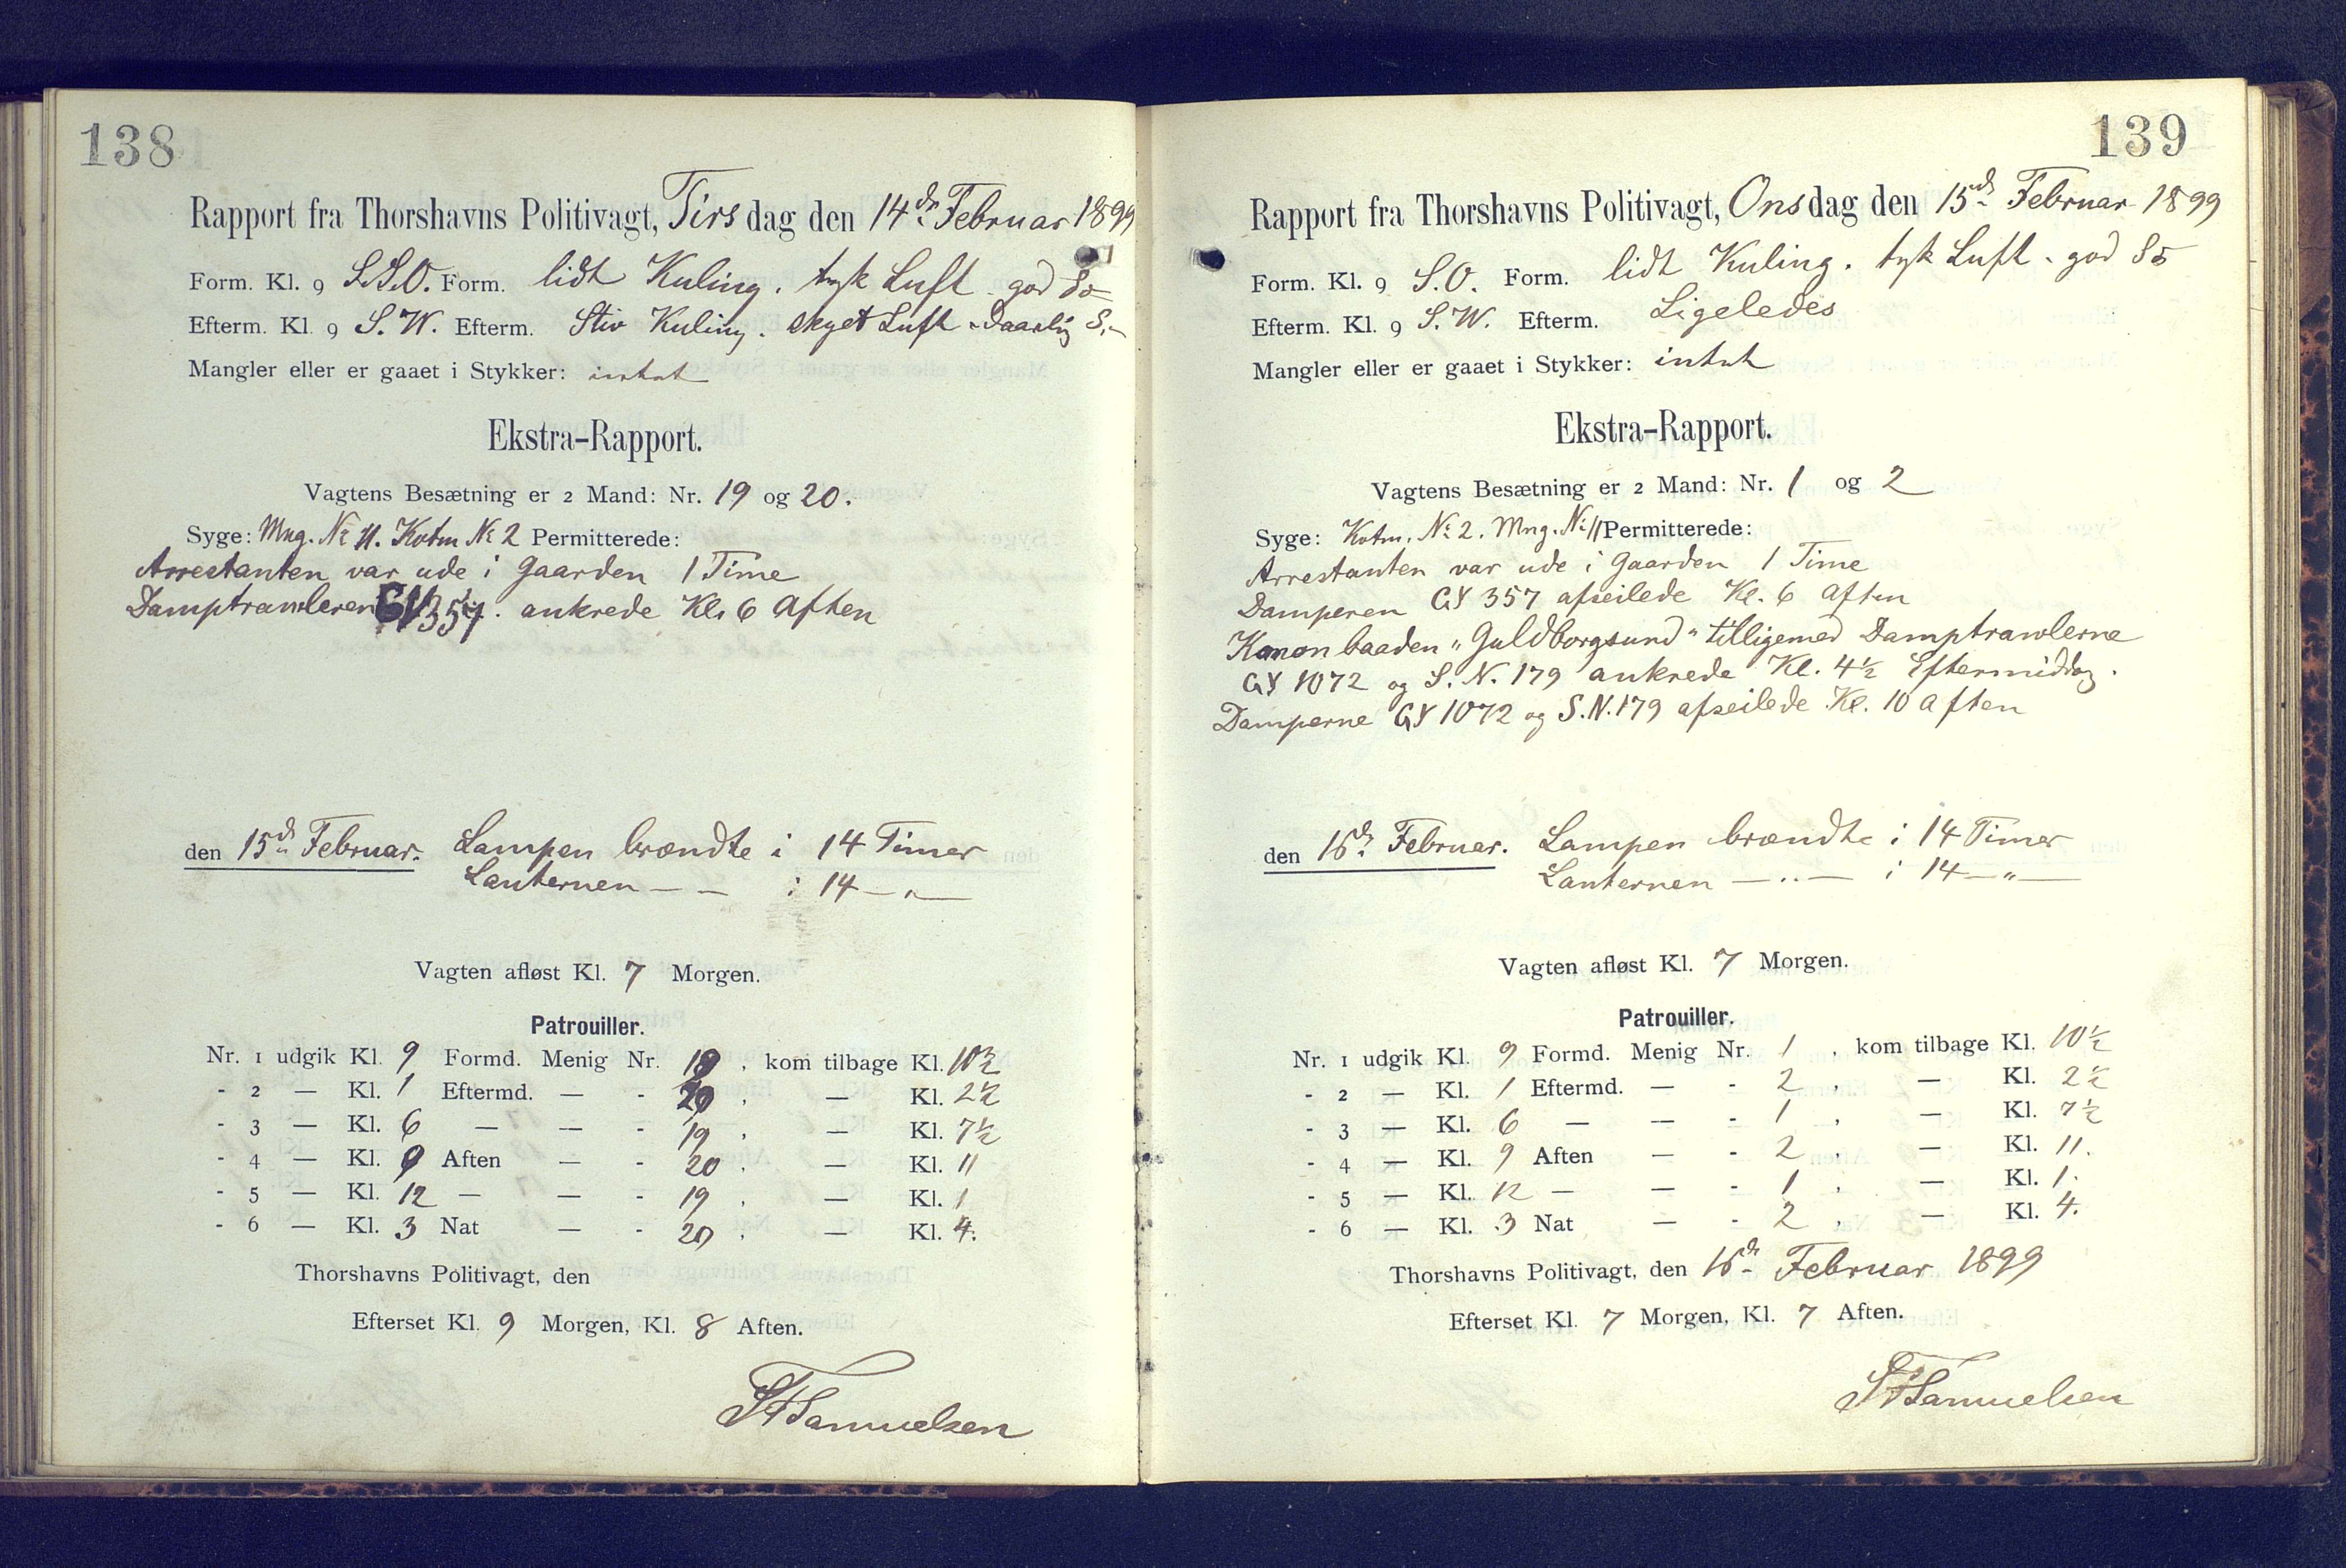 138
Rapport fra Thorshavns Politivagt, Tirsdag den 14de Februar 1899
Form. Kl. 9 S.S.O. Form. lidt Kuling. tyk Luft - god Sø
Efterm. Kl. 9 S.W. Efterm. Stiv Kuling. skyet Luft - Daarlig S.-
Mangler eller er gaaet i Stykker: intet
Ekstra-Rapport.
Vagtens Besætning er 2 Mand: Nr. 19 og 20.
Syge: Mng. No 11. Kotm No 2 Permitterede:
Arrestanten var ude i Gaarden 1 Time
Damptrawleren GY 357. ankrede Kl. 6 Aften
den 15de Februar. Lampen brændte i 14 Timer
Lanternen — — i 14 — " —
Vagten afløst Kl. 7 Morgen.
Patrouiller.
Nr. 1 udgik Kl. 9 Formd. Menig Nr. 19, kom tilbage Kl. 10½
- 2 — Kl. 1 Eftermd. — - 20, — Kl. 2½
- 3 — Kl. 6 — — - 19, — Kl. 7½
- 4 — Kl. 9 Aften — - 20, — Kl. 11
- 5 — Kl. 12 — — - 19, — Kl. 1
- 6 — Kl. 3 Nat — - 20, — Kl. 4.
Thorshavns Politivagt, den
Efterset Kl. 9 Morgen, Kl. 8 Aften.
Samuelsen
139
Rapport fra Thorshavns Politivagt, Onsdag den 15de Februar 1899
Form. Kl. 9 S.O. Form. lidt Kuling. tyk Luft - god Sø
Efterm. Kl. 9 S.W. Efterm. Ligeledes
Mangler eller er gaaet i Stykker: intet
Ekstra-Rapport.
Vagtens Besætning er 2 Mand: Nr. 1 og 2
Syge: Kotm. No 2. Mng. No 11 Permitterede:
Arrestanten var ude i Gaarden 1 Time
Damperen GY 357 afseilede Kl. 6 Aften
Kanonbaaden "Guldborgsund" tilligemed Damptrawlerne
GY 1072 og S.N. 179 ankrede Kl. 4½ Eftermiddag.
Damperne GY 1072 og S.N. 179 afseilede Kl. 10 Aften
den 16de Februar. Lampen brændte i 14 Timer
Lanternen — " — i 14 — " —
Vagten afløst Kl. 7 Morgen.
Patrouiller.
Nr. 1 udgik Kl. 9 Formd. Menig Nr. 1, kom tilbage Kl. 10½
- 2 — Kl. 1 Eftermd. — - 2, — Kl. 2½
- 3 — Kl. 6 — — - 1, — Kl. 7½
- 4 — Kl. 9 Aften — - 2, — Kl. 11.
- 5 — Kl. 12 — — - 1, — Kl. 1.
- 6 — Kl. 3 Nat — - 2, — Kl. 4.
Thorshavns Politivagt, den 16de Februar 1899
Efterset Kl. 7 Morgen, Kl. 7 Aften.
Samuelsen